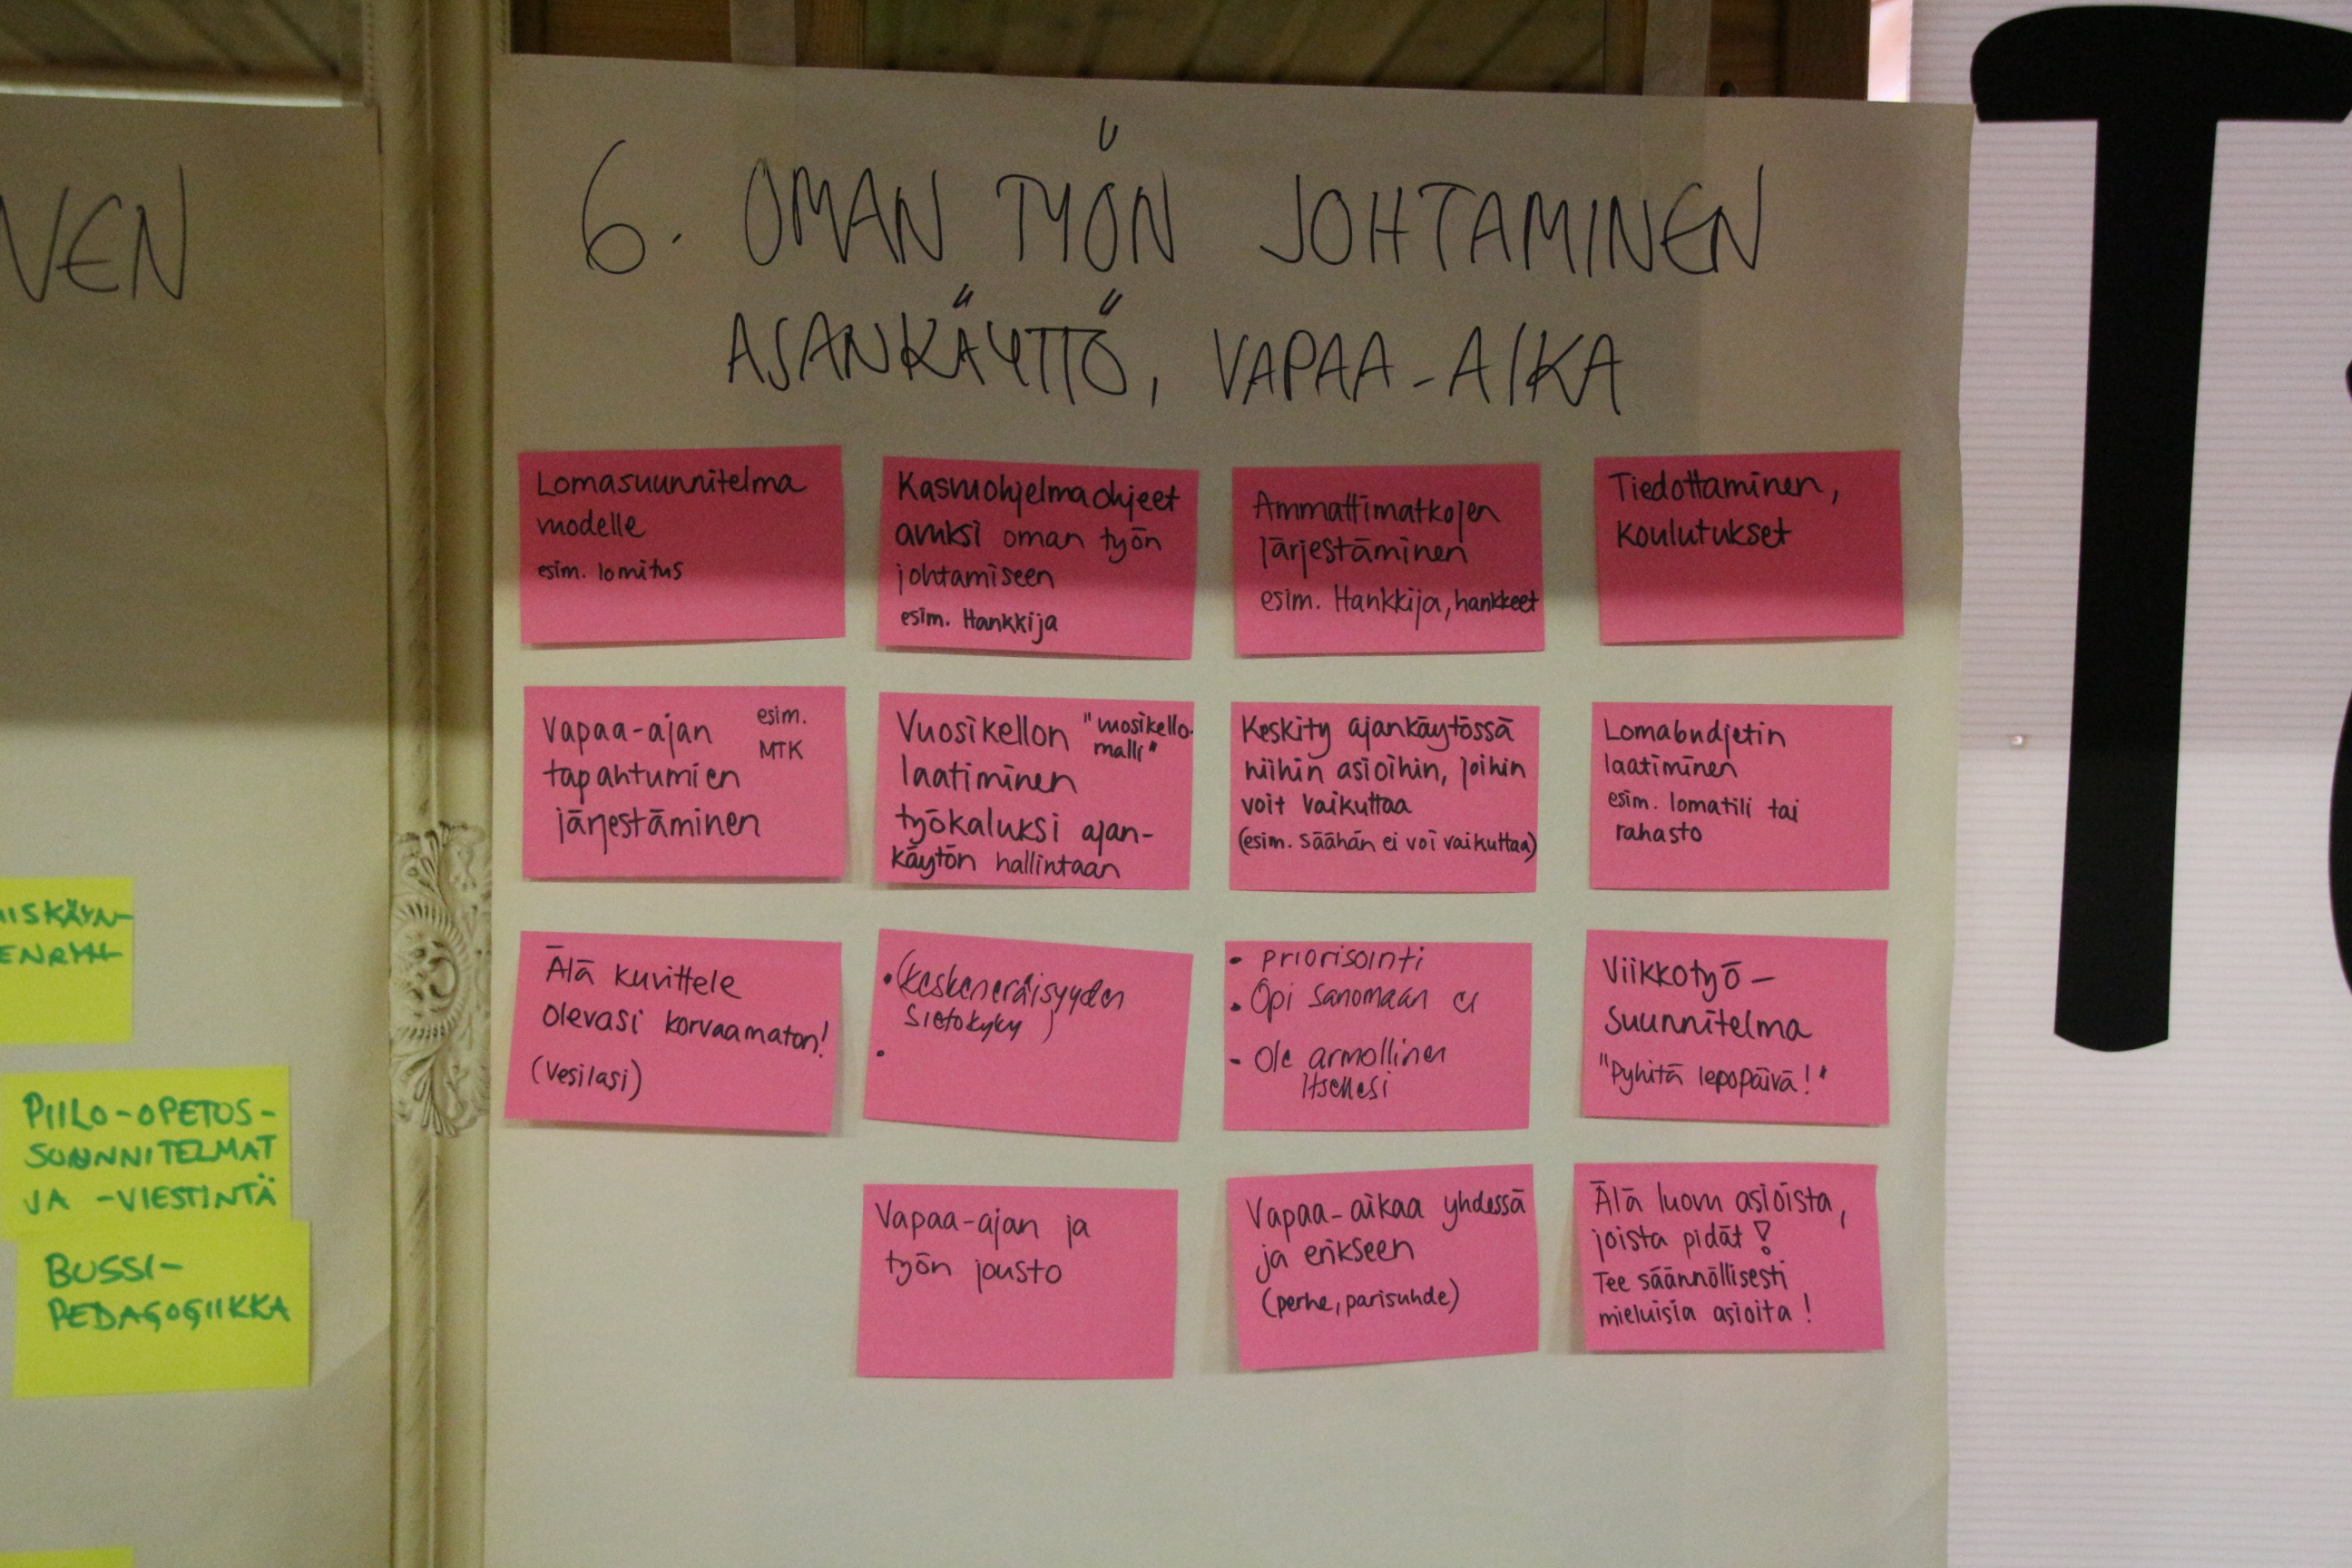 NEN
6. OMAN TYÖN JOHTAMINEN
AJANKÄYTTÖ, VAPAA-AIKA
Lomasuunnitelma
vuodelle
esim. lomitus
Kasvuohjelmaohjeet
avuksi oman työn
johtamiseen
esim. Hankkija
Ammattimatkojen
järjestäminen
esim. Hankkija, hankkeet
Tiedottaminen,
koulutukset
Vapaa-ajan esim.
MTK
tapahtumien
järjestäminen
Vuosikellon "vuosikello-
malli"
laatiminen
työkaluksi ajan-
käytön hallintaan
Keskity ajankäytössä
niihin asioihin, joihin
voit vaikuttaa
(esim. säähän ei voi vaikuttaa)
Lomabudjetin
laatiminen
esim. lomatili tai
rahasto
Älä kuvittele
olevasi korvaamaton!
(Vesilasi)
• (keskeneräisyyden
sietokyky)
•
• priorisointi
• Opi sanomaan ei
- Ole armollinen
itsellesi
Viikkotyö-
suunnitelma
"Pyhitä lepopäivä!"
Vapaa-ajan ja
työn jousto
Vapaa-aikaa yhdessä
ja erikseen
(perhe, parisuhde)
Älä luovu asioista,
joista pidät!
Tee säännöllisesti
mieluisia asioita!
ISKÄYN-
ENRYH-
PIILO-OPETUS-
SUUNNITELMAT
JA -VIESTINTÄ
BUSSI-
PEDAGOGIIKKA
T